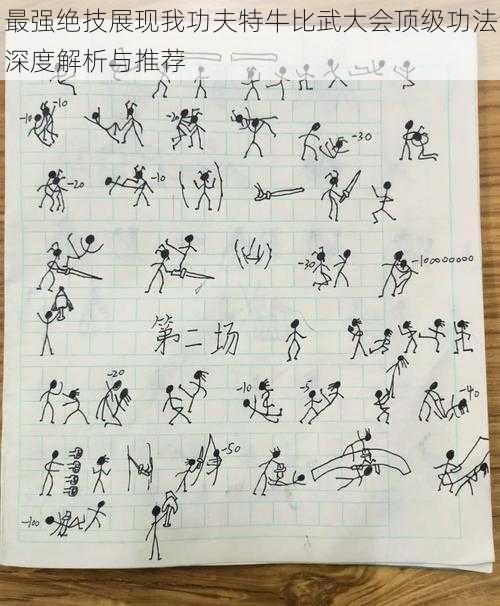 最强绝技展现我功夫特牛比武大会顶级功法
深度解析与推荐
-10 -10 -20 -30
-20 -10
-30 -100000000
第二场
-20 -10 -5 -40
-50
-100